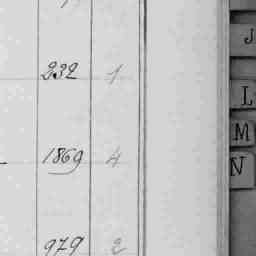 232 1
1869 4
979 2
J
L
M
N